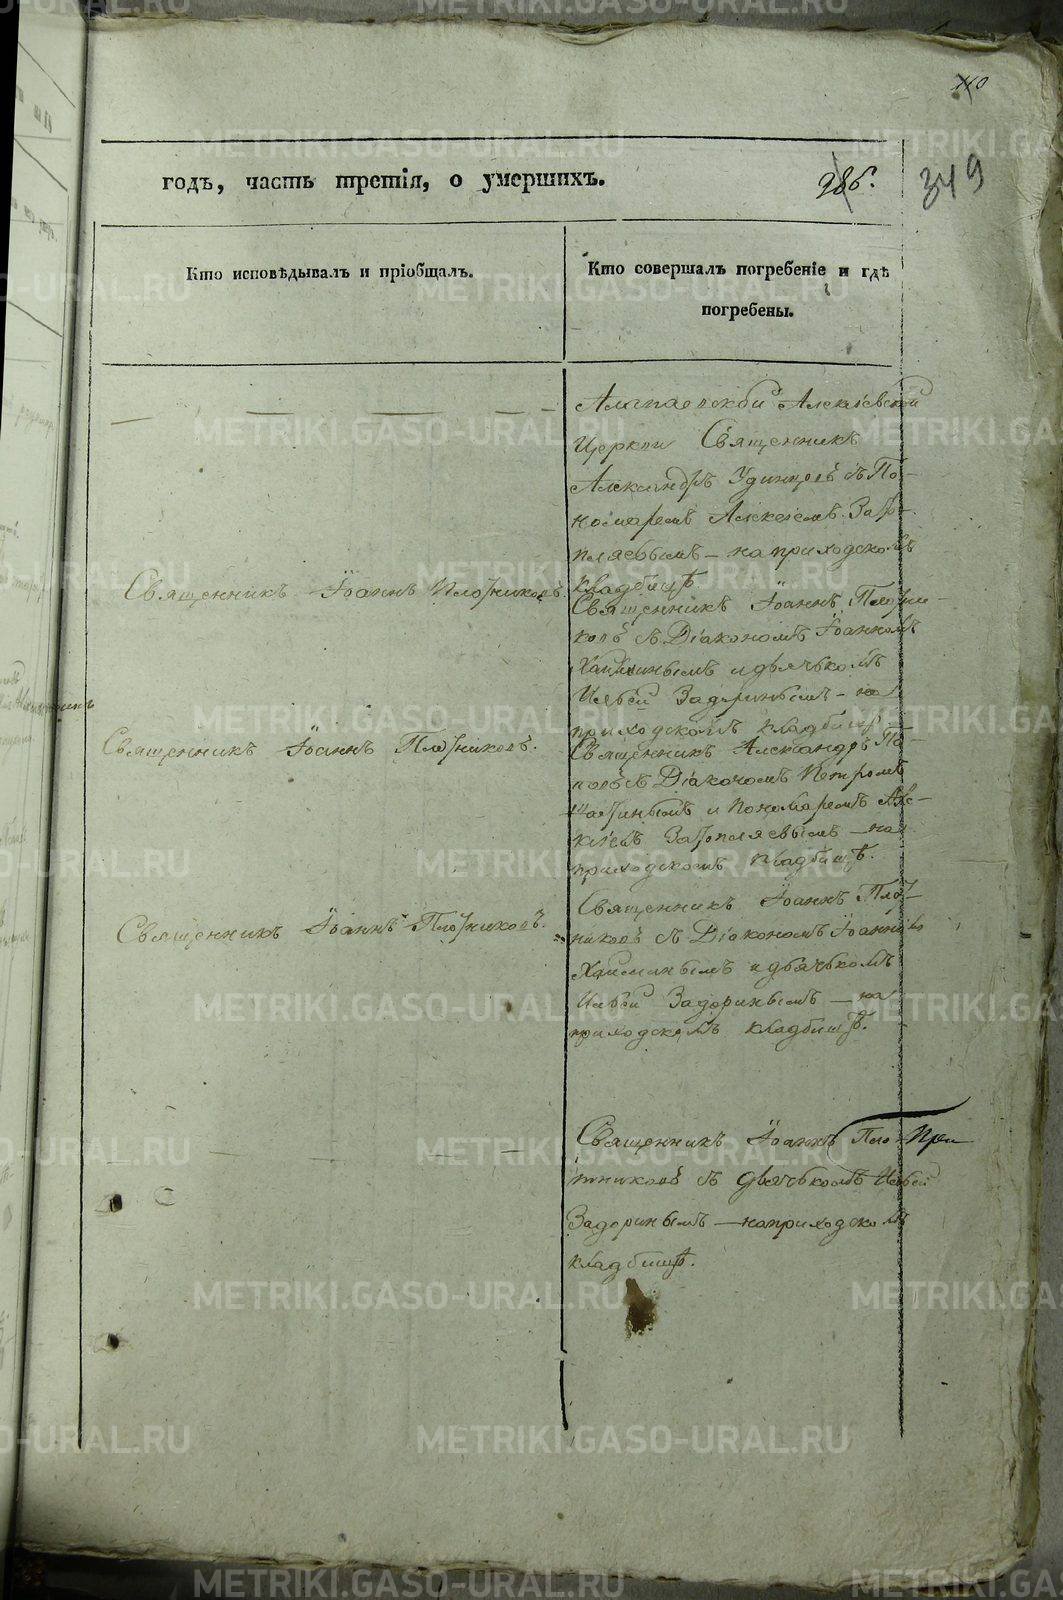 110
годъ, часть третія, о умершихъ.
286.
349
Кто исповѣдывалъ и пріобщалъ.
Кто совершалъ погребеніе и гдѣ
погребены.
Алапаевской Алексіевской
Церкви Священникъ
Александръ Удинцовъ съ По-
номаремъ Алексѣемъ Затоп-
пляевымъ – на приходскомъ
кладбищѣ
Священникъ Іоаннъ Плотниковъ.
Священникъ Іоаннъ Плотни-
ковъ съ Діакономъ Іоанномъ
и дьячькомъ
Ильёй Задоринымъ – на
приходскомъ кладбищѣ
Священникъ Іоаннъ Плотниковъ.
Священникъ Александръ По-
повъ съ Діакономъ Петромъ
и Пономаремъ Але-
ксѣемъ Затопляевымъ – на
приходскомъ кладбищѣ.
Священникъ Іоаннъ Плотниковъ.
Священникъ Іоаннъ Плот-
никовъ съ Діакономъ Іоанномъ
и дьячькомъ
Ильёй Задоринымъ – на
приходскомъ кладбищѣ.
Священникъ Іоаннъ Пло-
При
тниковъ съ дьячькомъ Ильёй
Задоринымъ – на приходскомъ
кладбищѣ.
METRIKI.GASO-URAL.RU